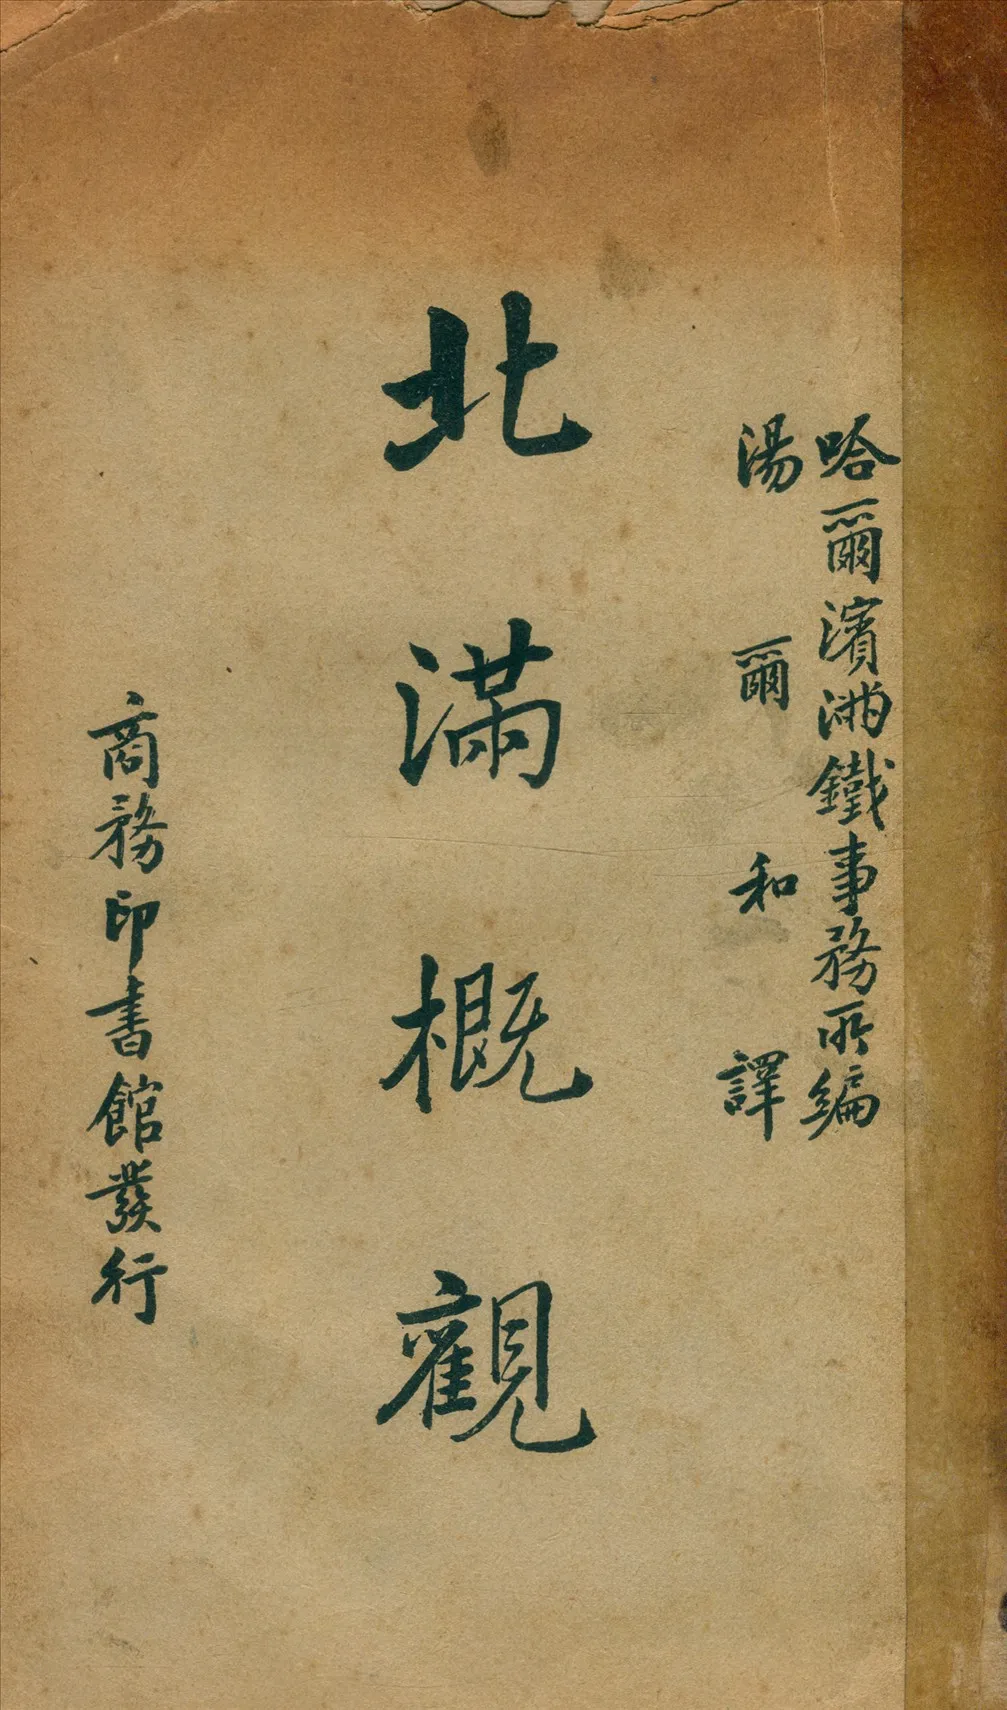 哈爾濱满鐵事務所編
湯爾和譯
北滿概觀
商務印書館發行